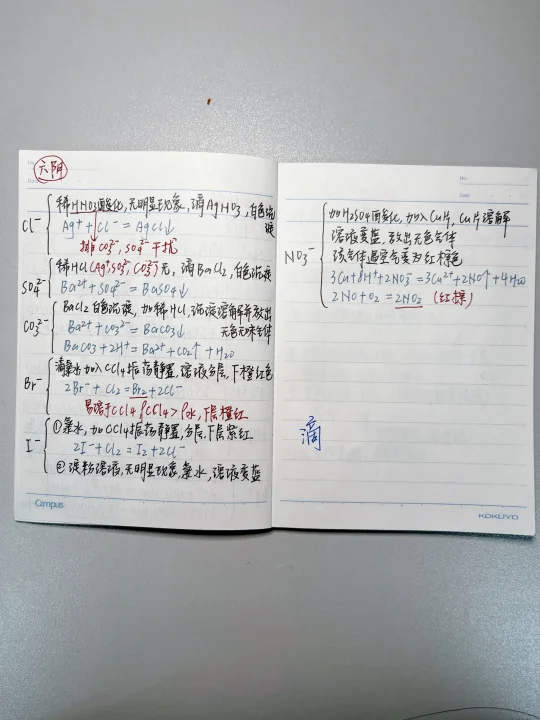 六阴
Cl⁻ 稀HNO3酸化,无明显现象,滴AgNO3,白色沉淀
Ag⁺+Cl⁻=AgCl↓
排CO3²⁻,SO4²⁻干扰
SO4²⁻ 稀HCl(Ag⁺,SO3²⁻,CO3²⁻)无,滴BaCl2,白色沉淀
Ba²⁺+SO4²⁻=BaSO4↓
CO3²⁻ BaCl2白色沉淀,加稀HCl,沉淀溶解并放出
无色无味气体
Ba²⁺+CO3²⁻=BaCO3↓
BaCO3+2H⁺=Ba²⁺+CO2↑+H2O
Br⁻ 滴氯水加入CCl4振荡静置,溶液分层,下橙红色
2Br⁻+Cl2=Br2+2Cl⁻
易溶于CCl4 ρCCl4>ρ水,下层橙红
I⁻ ①氯水,加CCl4振荡静置,分层,下层紫红
2I⁻+Cl2=I2+2Cl⁻
②淀粉溶液,无明显现象,氯水,溶液变蓝
Campus
No.
Date
NO3⁻ 加H2SO4酸化,加入Cu片,Cu片溶解
溶液变蓝,放出无色气体
该气体遇空气变为红棕色
3Cu+8H⁺+2NO3⁻=3Cu²⁺+2NO↑+4H2O
2NO+O2=2NO2(红棕)
滴
KOKUYO